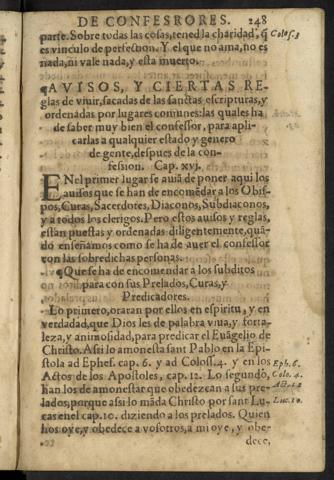 DE CONFESSORES. 248
parte. Sobre todas las cosas, tened la charidad, q̃ Colos. 3
es vinculo de perfection. Y el que no ama, no es
nada, ni vale nada, y esta muerto.
¶AVISOS, Y CIERTAS RE-
glas de viuir, sacadas de las sanctas escripturas, y
ordenadas por lugares comunes: las quales ha
de saber muy bien el confessor, para apli-
carlas a qualquier estado y genero
de gente, despues de la con-
fession. Cap. xvj.
EN el primer lugar se auiã de poner aqui los
auisos que se han de encomẽdar a los Obis-
pos, Curas, Sacerdotes, Diaconos, Subdiaconos,
y a todos los clerigos. Pero estos auisos y reglas,
estàn puestas y ordenadas diligentemente, quã-
do enseñamos como se ha de auer el confessor
con las sobredichas personas.
¶Que se ha de encomendar a los subditos
para con sus Prelados, Curas, y
Predicadores.
Lo primero, oraran por ellos en espiritu, y en
verdadad, que Dios les de palabra viua, y forta-
leza, y animosidad, para predicar el Euãgelio de
Christo. Assi lo amonesta sant Pablo en la Epi-
stola ad Ephes. cap. 6. y ad Coloss. 4. y en los Eph. 6.
Actos de los Apostoles, cap. 12. Lo segundo, Colo. 4.
han los de amonestar que obedezcan a sus pre- Act. 12
lados, porque assi lo mãda Christo por sant Lu- Luc. 10.
cas en el cap. 10. diziendo a los prelados. Quien
hos oye, y obedece a vosotros, a mi oye, y obe-
dece,